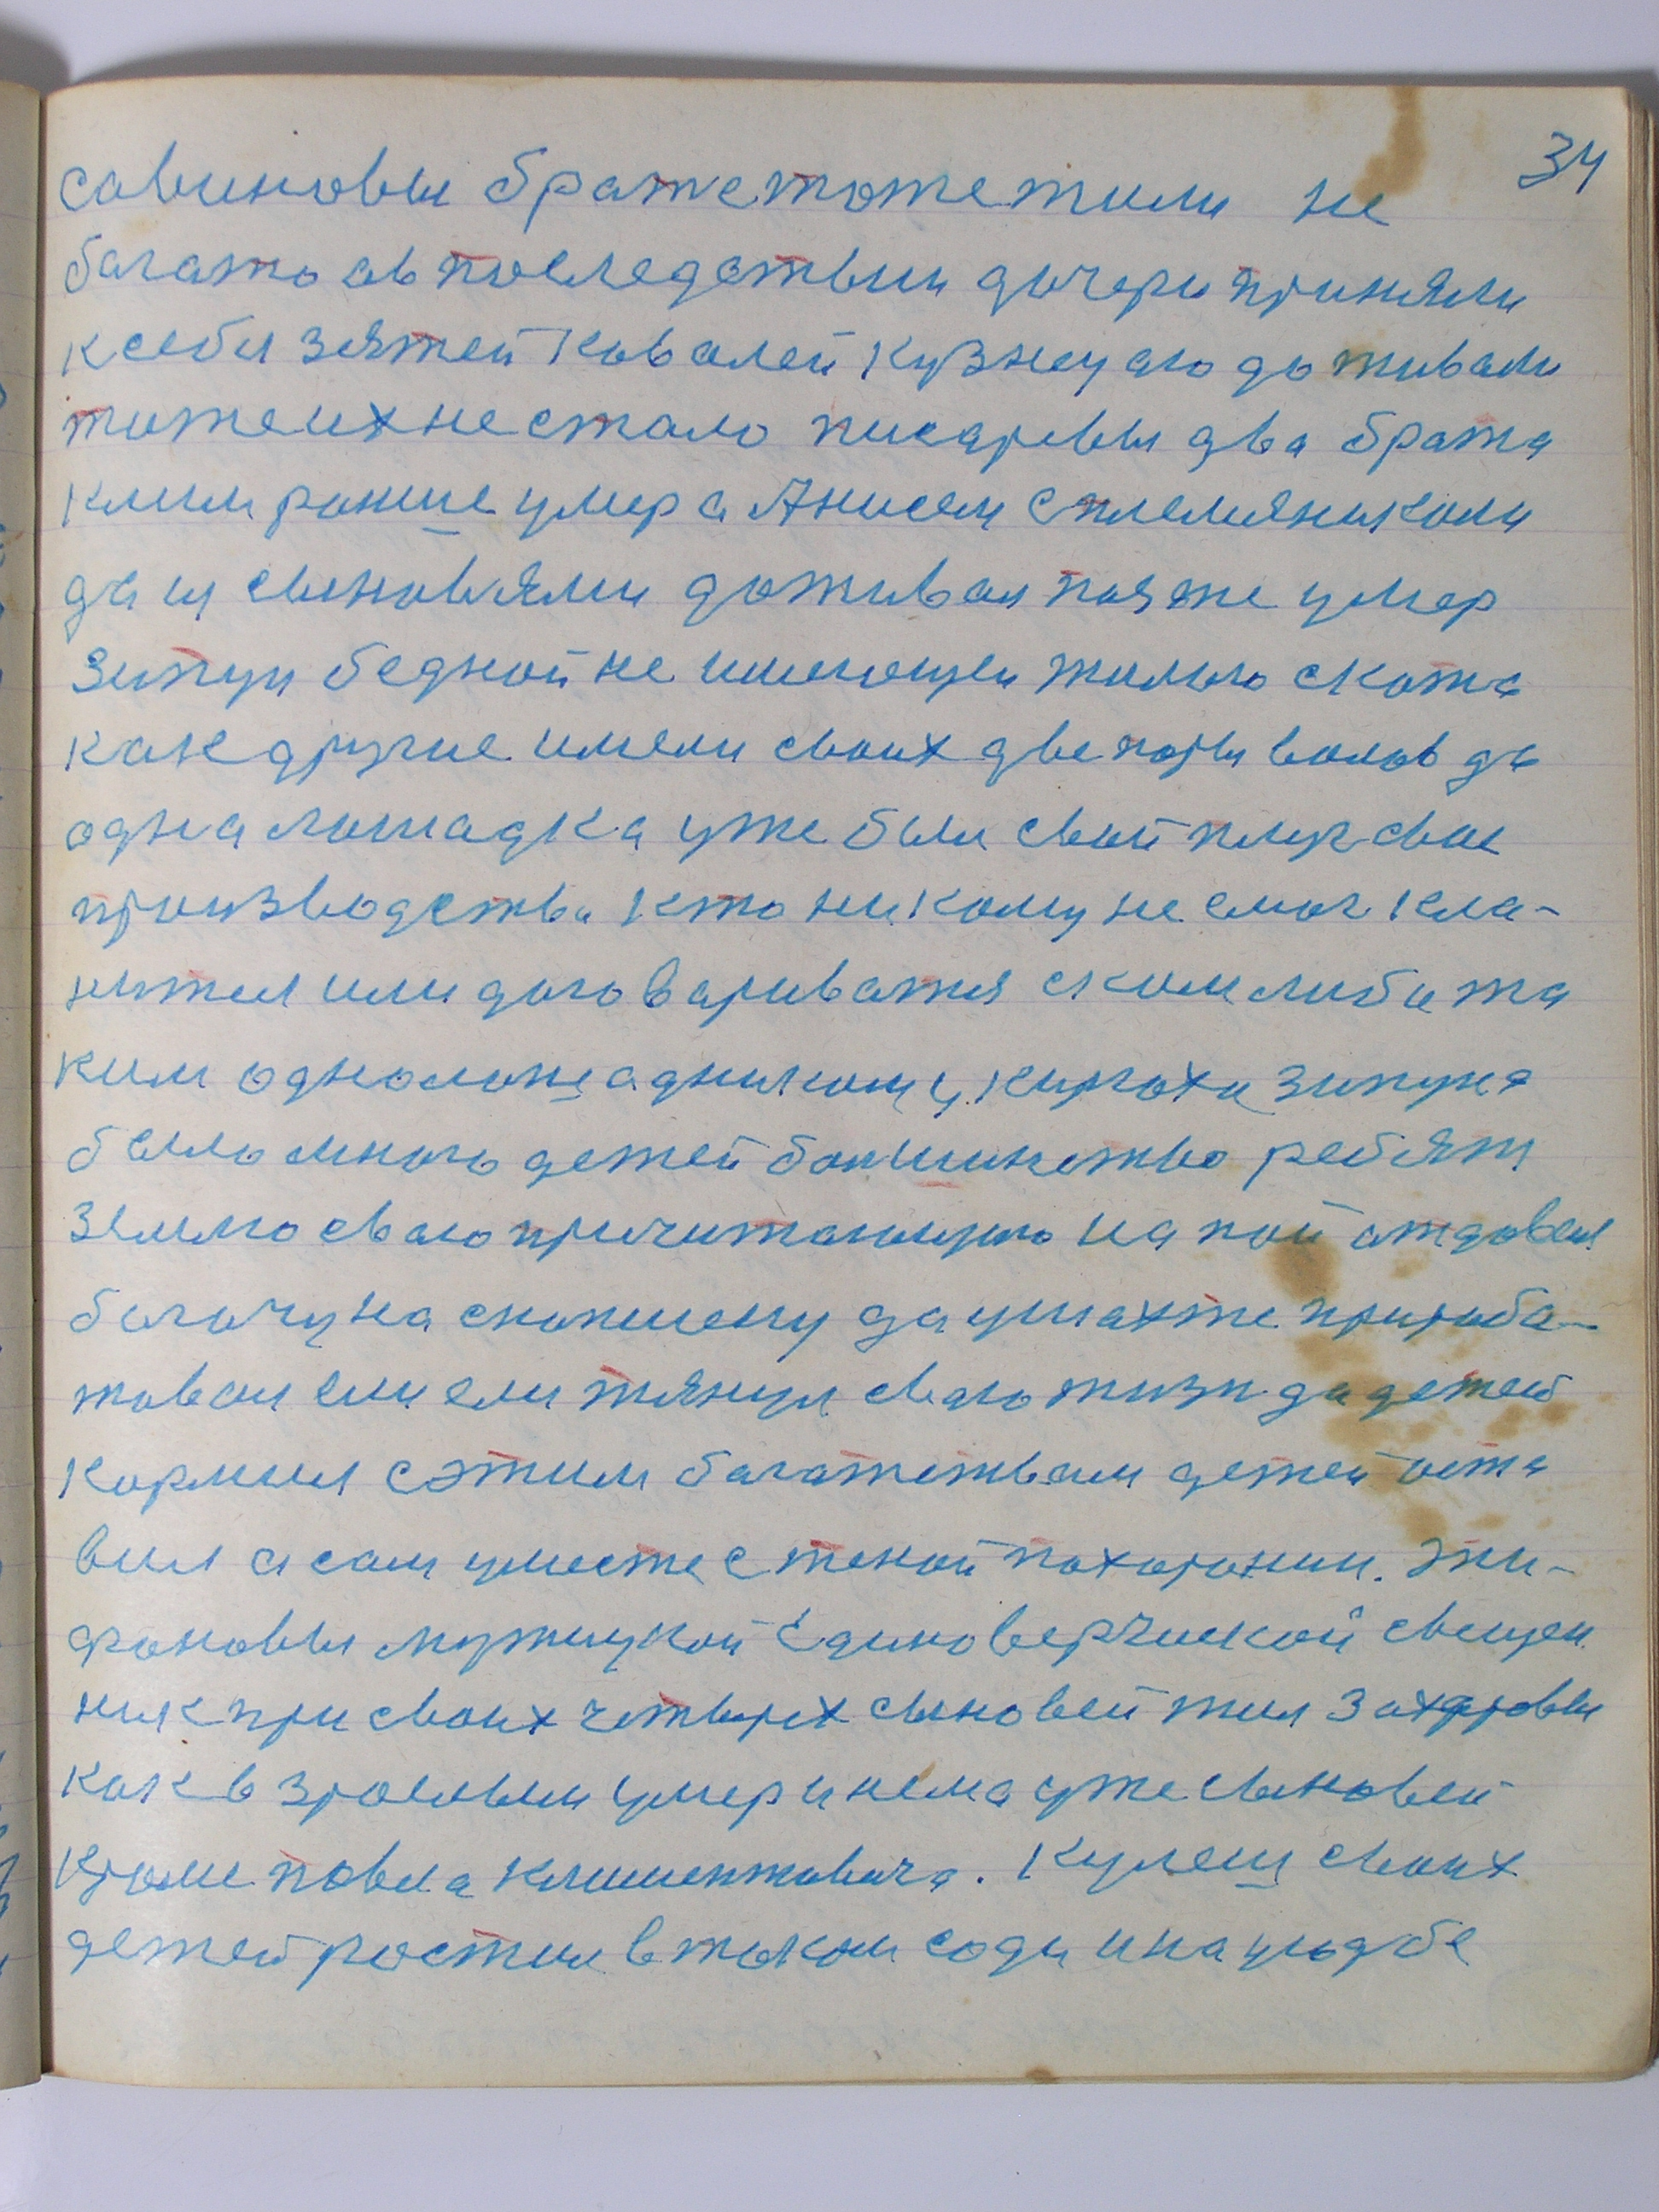 34
савиновы братетоже жили не
багато ав последствии дочери приняли
ксебя зятей Ковалей Кузнецаю доживали
тоже ихнестало писаревы два брата
клим раньше умер а Анисем сплемяником
да и сыновями доживал позже умер
Зипун бедной не имеющеи только скота
какдругие имели своих две пары волов да
одна лошадка уже были свой плуг свое
производства кто никому не смог кла-
нятся или договариватя скем либо та
ким однолошадником у кирюхи зипуна
было много детей болшинство ребят
Землю сваю причитающую на пай отдовал
богачу на скопшену да ушахте прираба-
товал еле ели тянул сваю жизн да детей
кормил сэтим багатством детей оста
вил а сам уместе с женой похоронин. Эти-
фоновы мужицкой Единоверческой свещен
ник при своих четверых сыновей жил Захаровы
как взрослыи умер и нема уже сыновей
кроме повела климентовича. Кулеш своих
детей ростил в таком соды и на усадбе